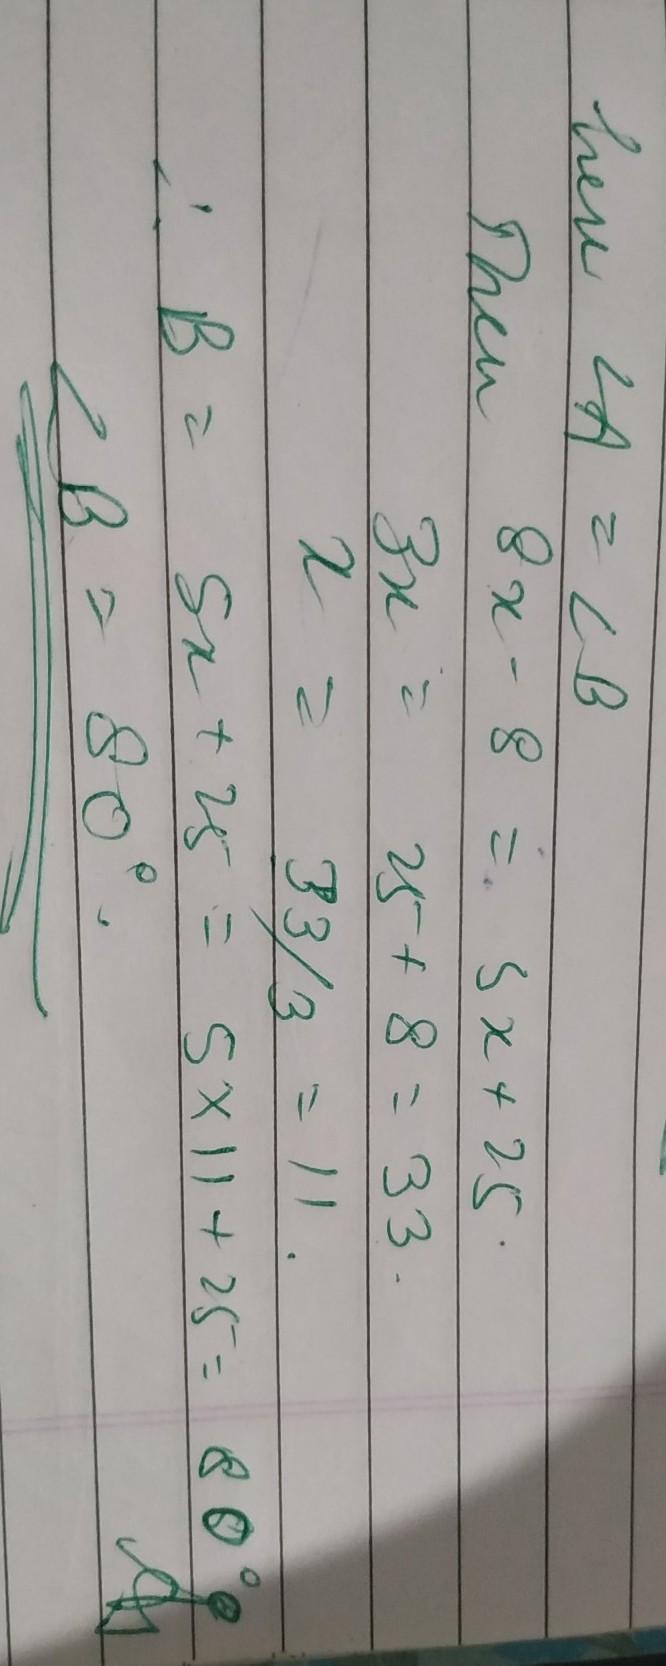 here ∠A = ∠B
Then 8x - 8 = 5x + 25.
3x = 25 + 8 = 33.
x = 33/3 = 11.
∴ B = 5x + 25 = 5 × 11 + 25 = 80°
∠B = 80°.